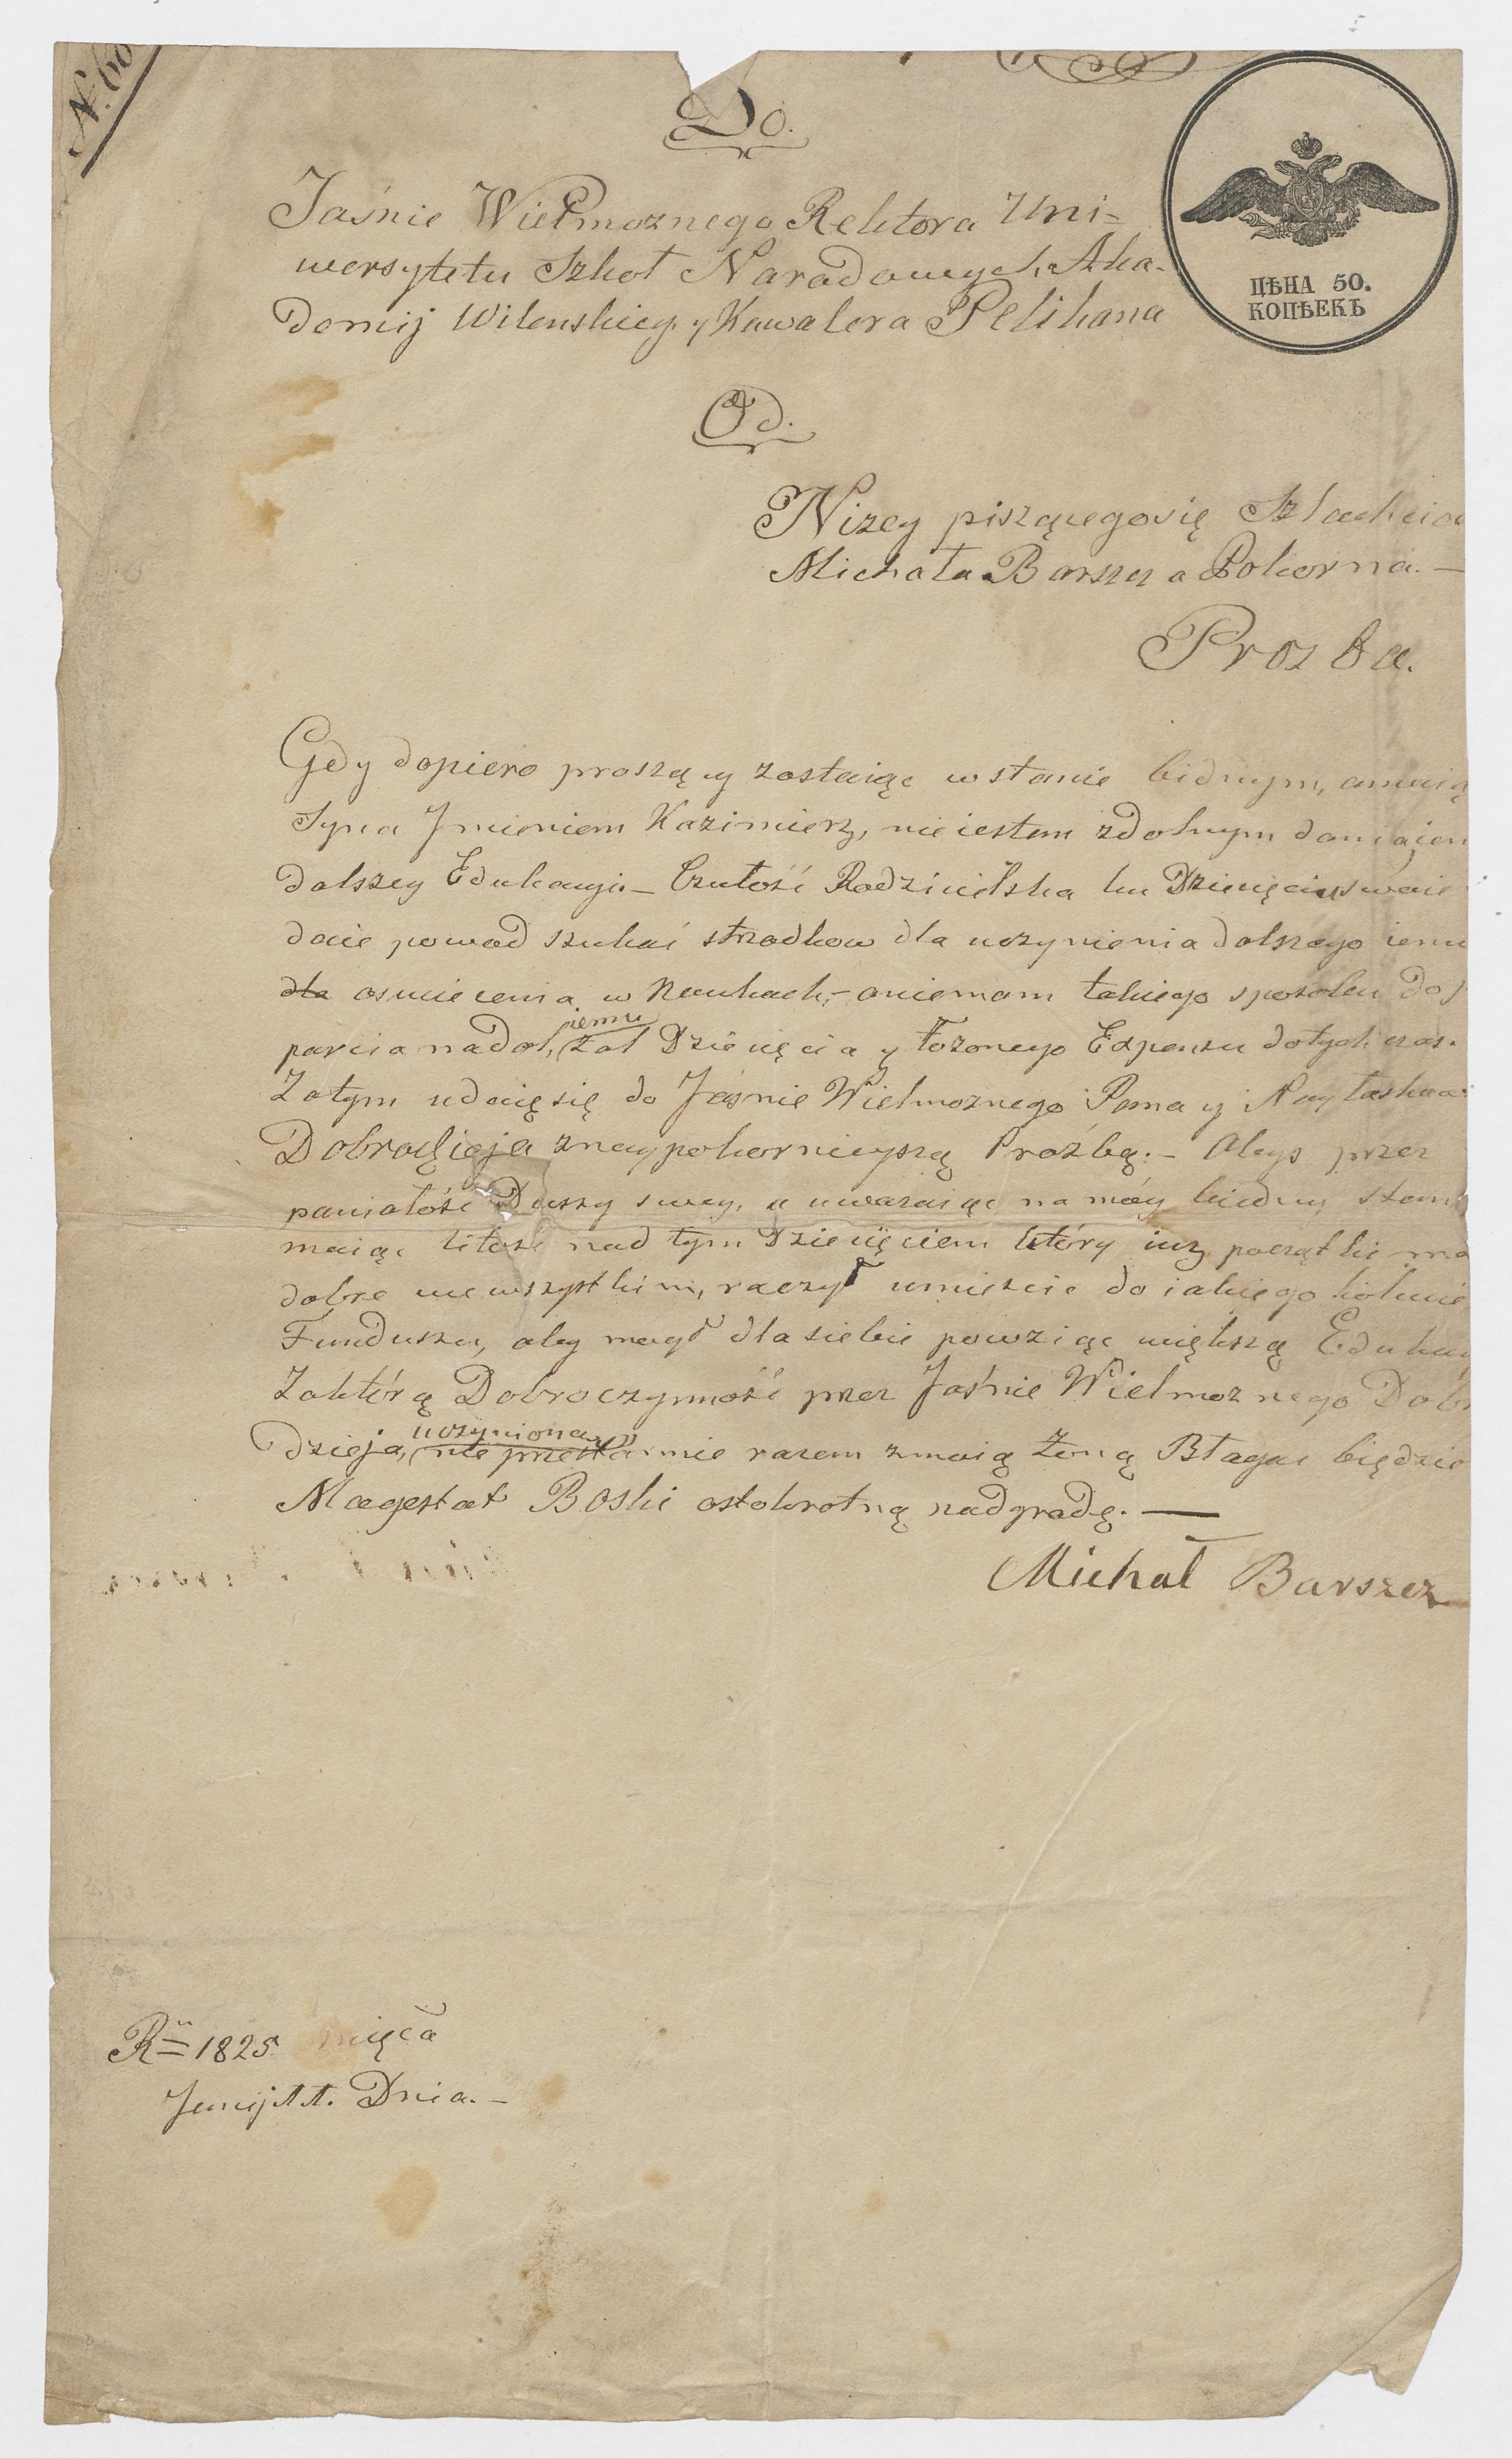 N. 60
Do.
Jaśnie Wielmoznego Rektora Uni-
wersytetu Szkoł Narodowych Aka-
demij Wilenskiey y Kawalera Pelikana
ЦѢНА 50.
КОПѢЕКЪ
Od.
Nizey piszącegosię Szlachcica
Michała Barszcza Pokorna.—
Prozba.
Gdy dopiero proszący zostaiąc w stanie bidnym, amaią
Syna Jmieniem Kazimierz, nieiestem zdolnym dania jem
dalszey Edukacyi.— Czułość Rodzicielska ku Dziecięciu swoie
daie powod szukać strzodkow dla uczynienia dalszego iemu
dla oswiecenia w Naukach,— aniemam takiego sposobu do
parcia nadal, iemu żal Dziecięcia y łożonego Expensu dotychczas.
Zatym udaięsię do Jaśnie Wielmoznego Pana y Nayłaskaw
Dobrodzieja znaypokornieyszą Proźbą.— Abyś przez
paniałość Duszy swey, a uwazaiąc na móy biedny stan
maiąc litość nad tym Dziecięciem który iuz początkie ma
dobre wewszystkim, raczył umieścic do iakiego kolwie
Funduszu, aby mógł dla siebie powziąc większą Edukac
Zaktórą Dobroczynność przez Jaśnie Wielmoznego Dob
dzieja, uczynioną nie przesta mie razem zmoią Żoną Błagac będzie
Magestat Boski ostokrotną nadgrodę.—
Michał Barszcz
Rᵘ 1825 mięca
Junij 11. Dnia.—